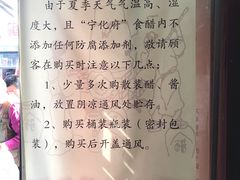 由于夏季天气气温高、湿
度大,且“宁化府”食醋内不
添加任何防腐添加剂,敬请顾
客在购买时注意以下几点:
1、少量多次购散装醋、酱
油,放置阴凉通风处贮存。
2、购买桶装瓶装(密封包
装),购买后开盖通风。